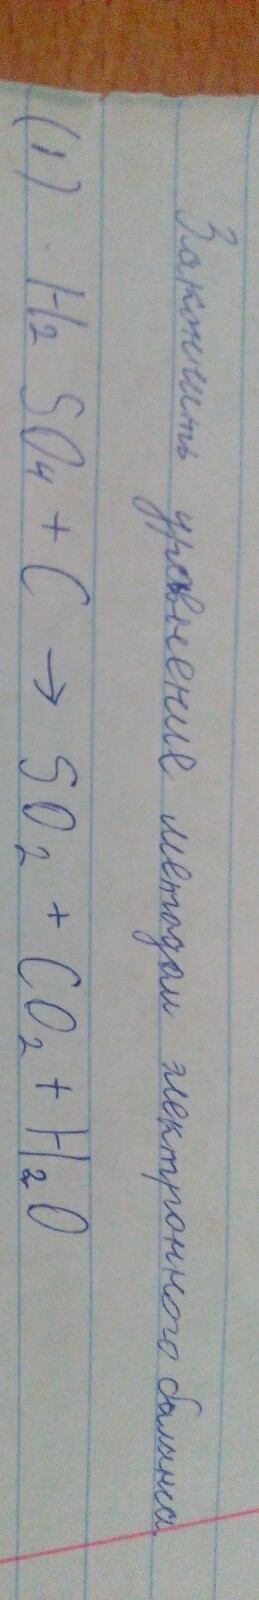 Закончить уравнение методом электронного баланса
(1) H₂SO₄ + C → SO₂ + CO₂ + H₂O